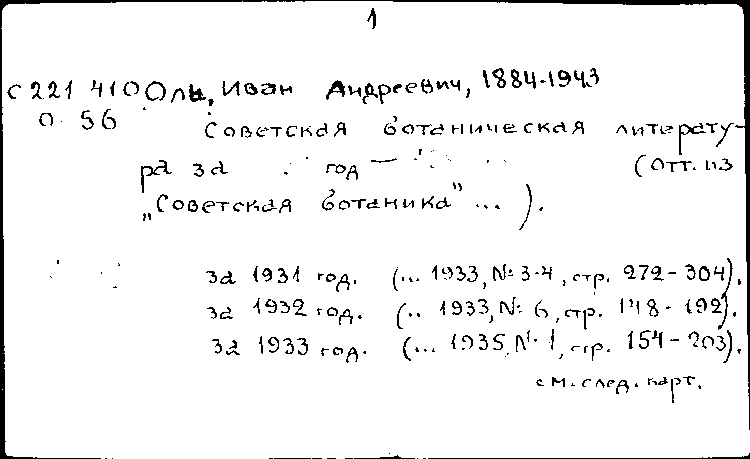 1
с 221 410 Оль, Иван Андреевич, 1884-1943
О 56 Советская ботаническая литерату-
ра за год — (Отт. из
„Советская ботаника" ... ).
за 1931 год. (... 1933, № 3-4, стр. 272-304).
за 1932 год. (.. 1933, № 6, стр. 148-192).
за 1933 год. (... 1935, № 1, стр. 154-203).
см. след. карт.